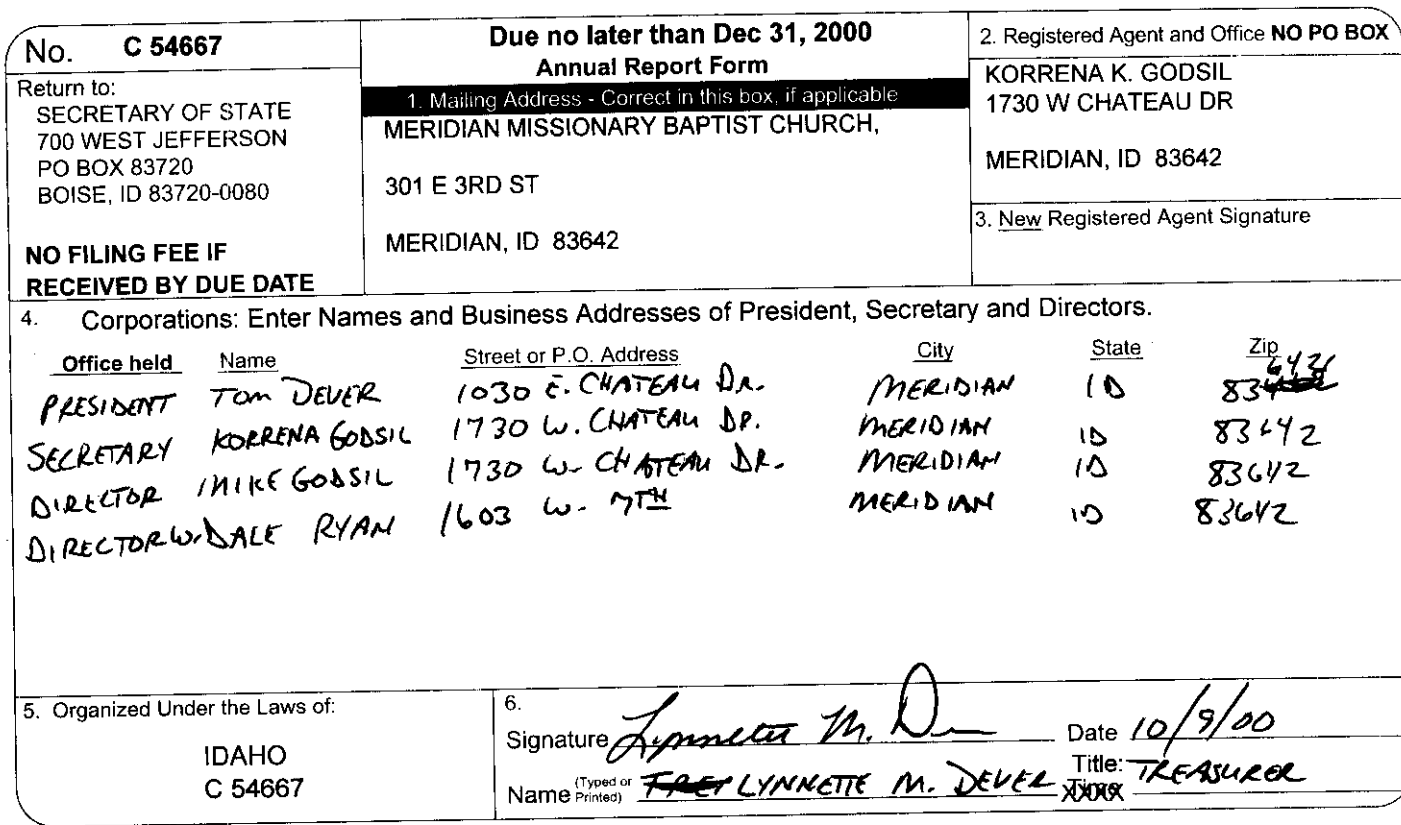 No. C 54667
Return to:
SECRETARY OF STATE
700 WEST JEFFERSON
PO BOX 83720
BOISE, ID 83720-0080
NO FILING FEE IF
RECEIVED BY DUE DATE
Due no later than Dec 31, 2000
Annual Report Form
1. Mailing Address - Correct in this box, if applicable
MERIDIAN MISSIONARY BAPTIST CHURCH,
301 E 3RD ST
MERIDIAN, ID 83642
2. Registered Agent and Office NO PO BOX
KORRENA K. GODSIL
1730 W CHATEAU DR
MERIDIAN, ID 83642
3. New Registered Agent Signature
4. Corporations: Enter Names and Business Addresses of President, Secretary and Directors.
Office held Name Street or P.O. Address City State Zip
PRESIDENT TOM DEVER 1030 E. CHATEAU DR. MERIDIAN ID 83642
SECRETARY KORRENA GODSIL 1730 W. CHATEAU DR. MERIDIAN ID 83642
DIRECTOR MIKE GODSIL 1730 W. CHATEAU DR. MERIDIAN ID 83642
DIRECTOR W. DALE RYAN 1603 W. 7TH MERIDIAN ID 83642
5. Organized Under the Laws of:
IDAHO
C 54667
6.
Signature Lynnette M. D Date 10/9/00
Name (Typed or Printed) LYNNETTE M. DEVER Title: TREASURER